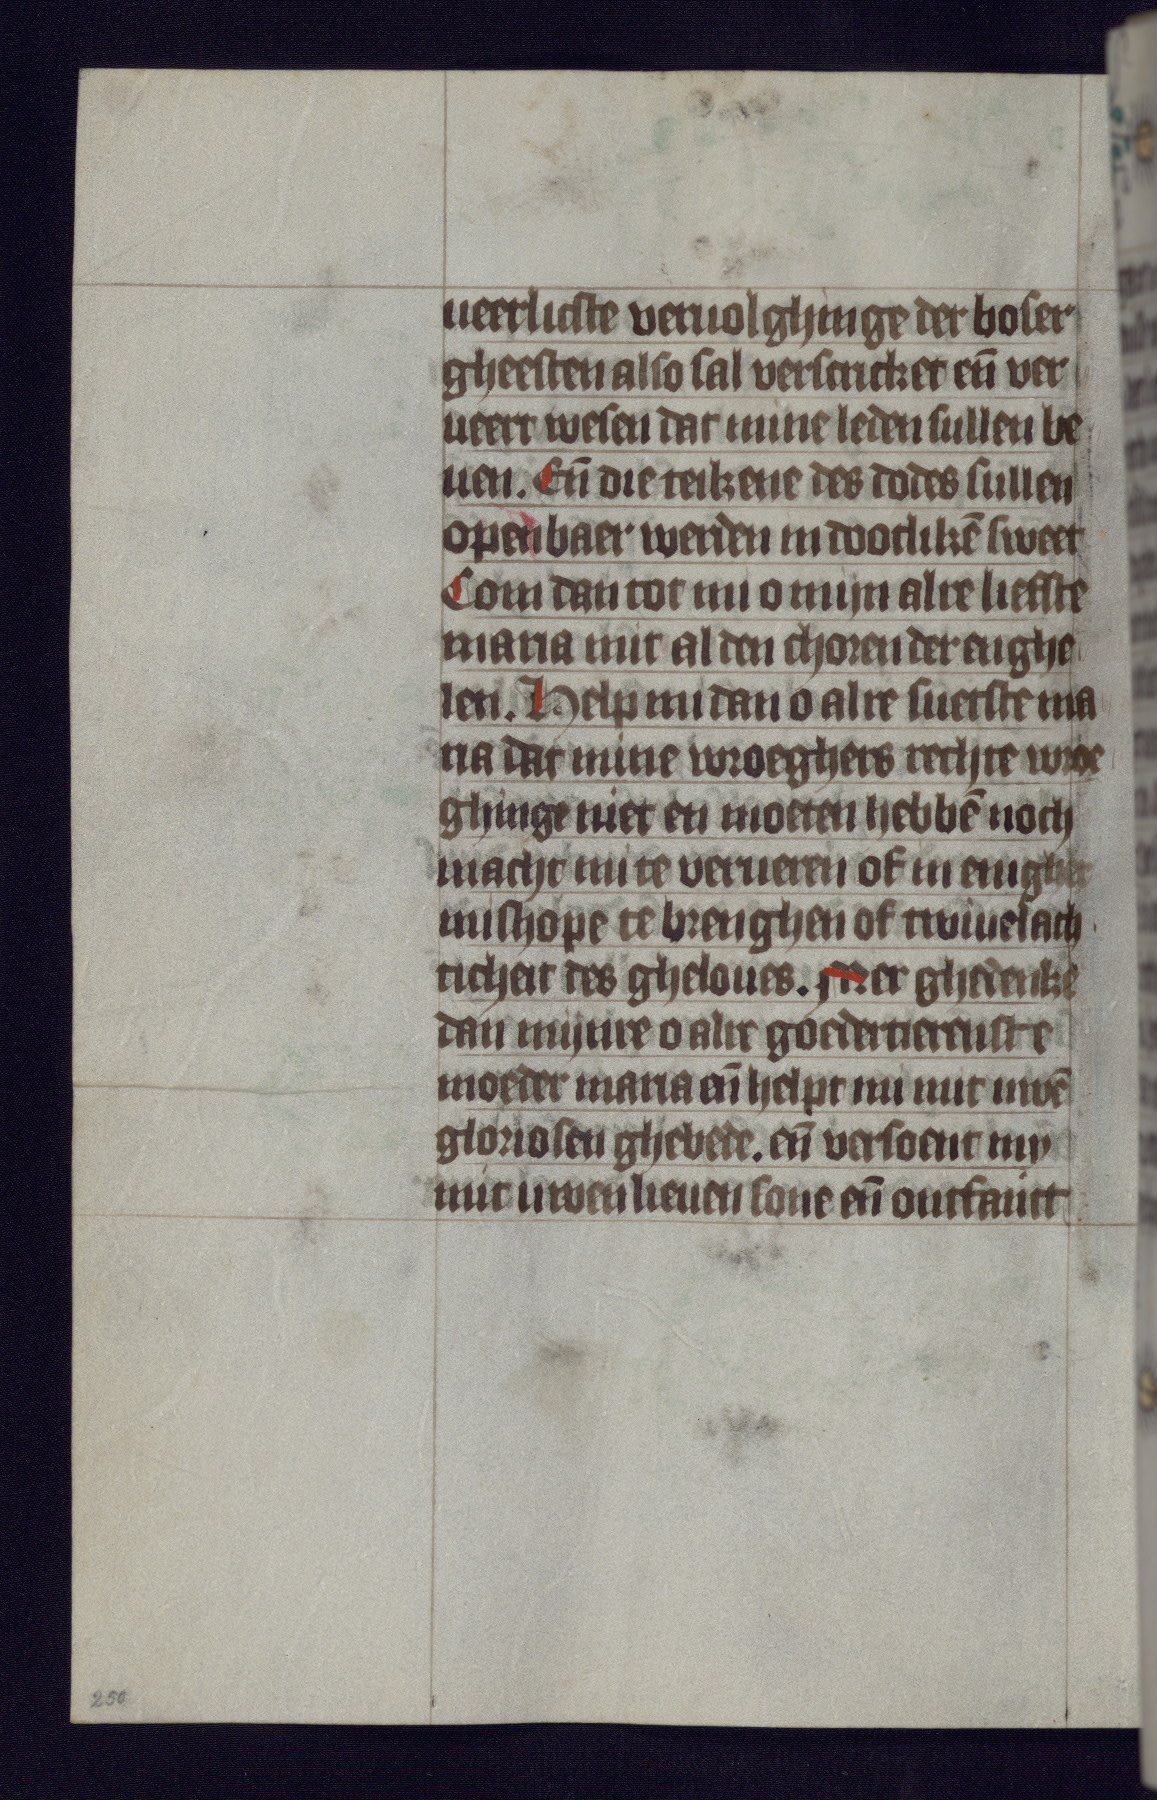 ueerlicste veruolghinge der boser
gheesten also sal verscricket en̄ ver
ueert wesen dat mine leden sullen be
uen. En̄ die teikene des dodes sullen
openbaer werden in dootlikē sweet
Com dan tot mi o mijn alre liefste
maria mit al den choren der enghe
len. Help mi dan o alre suetste ma
ria dat mine wroeghers rechte wroe
ghinge niet en moeten hebbē noch
macht mi te verueren of in enigher
mishope te brenghen of twiuelach
ticheit des gheloues. Mer ghedenke
dan mijnre o alre goedertierenste
moeder maria en̄ helpt mi mit uwē
gloriosen ghebede. en̄ versoent my
mit uwen lieuen sone en̄ ontfanct
250